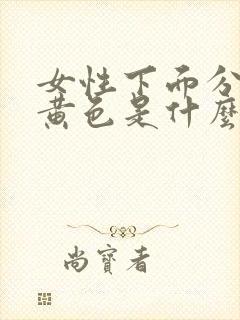 女性下面分
黄色是什麼
尚寶者